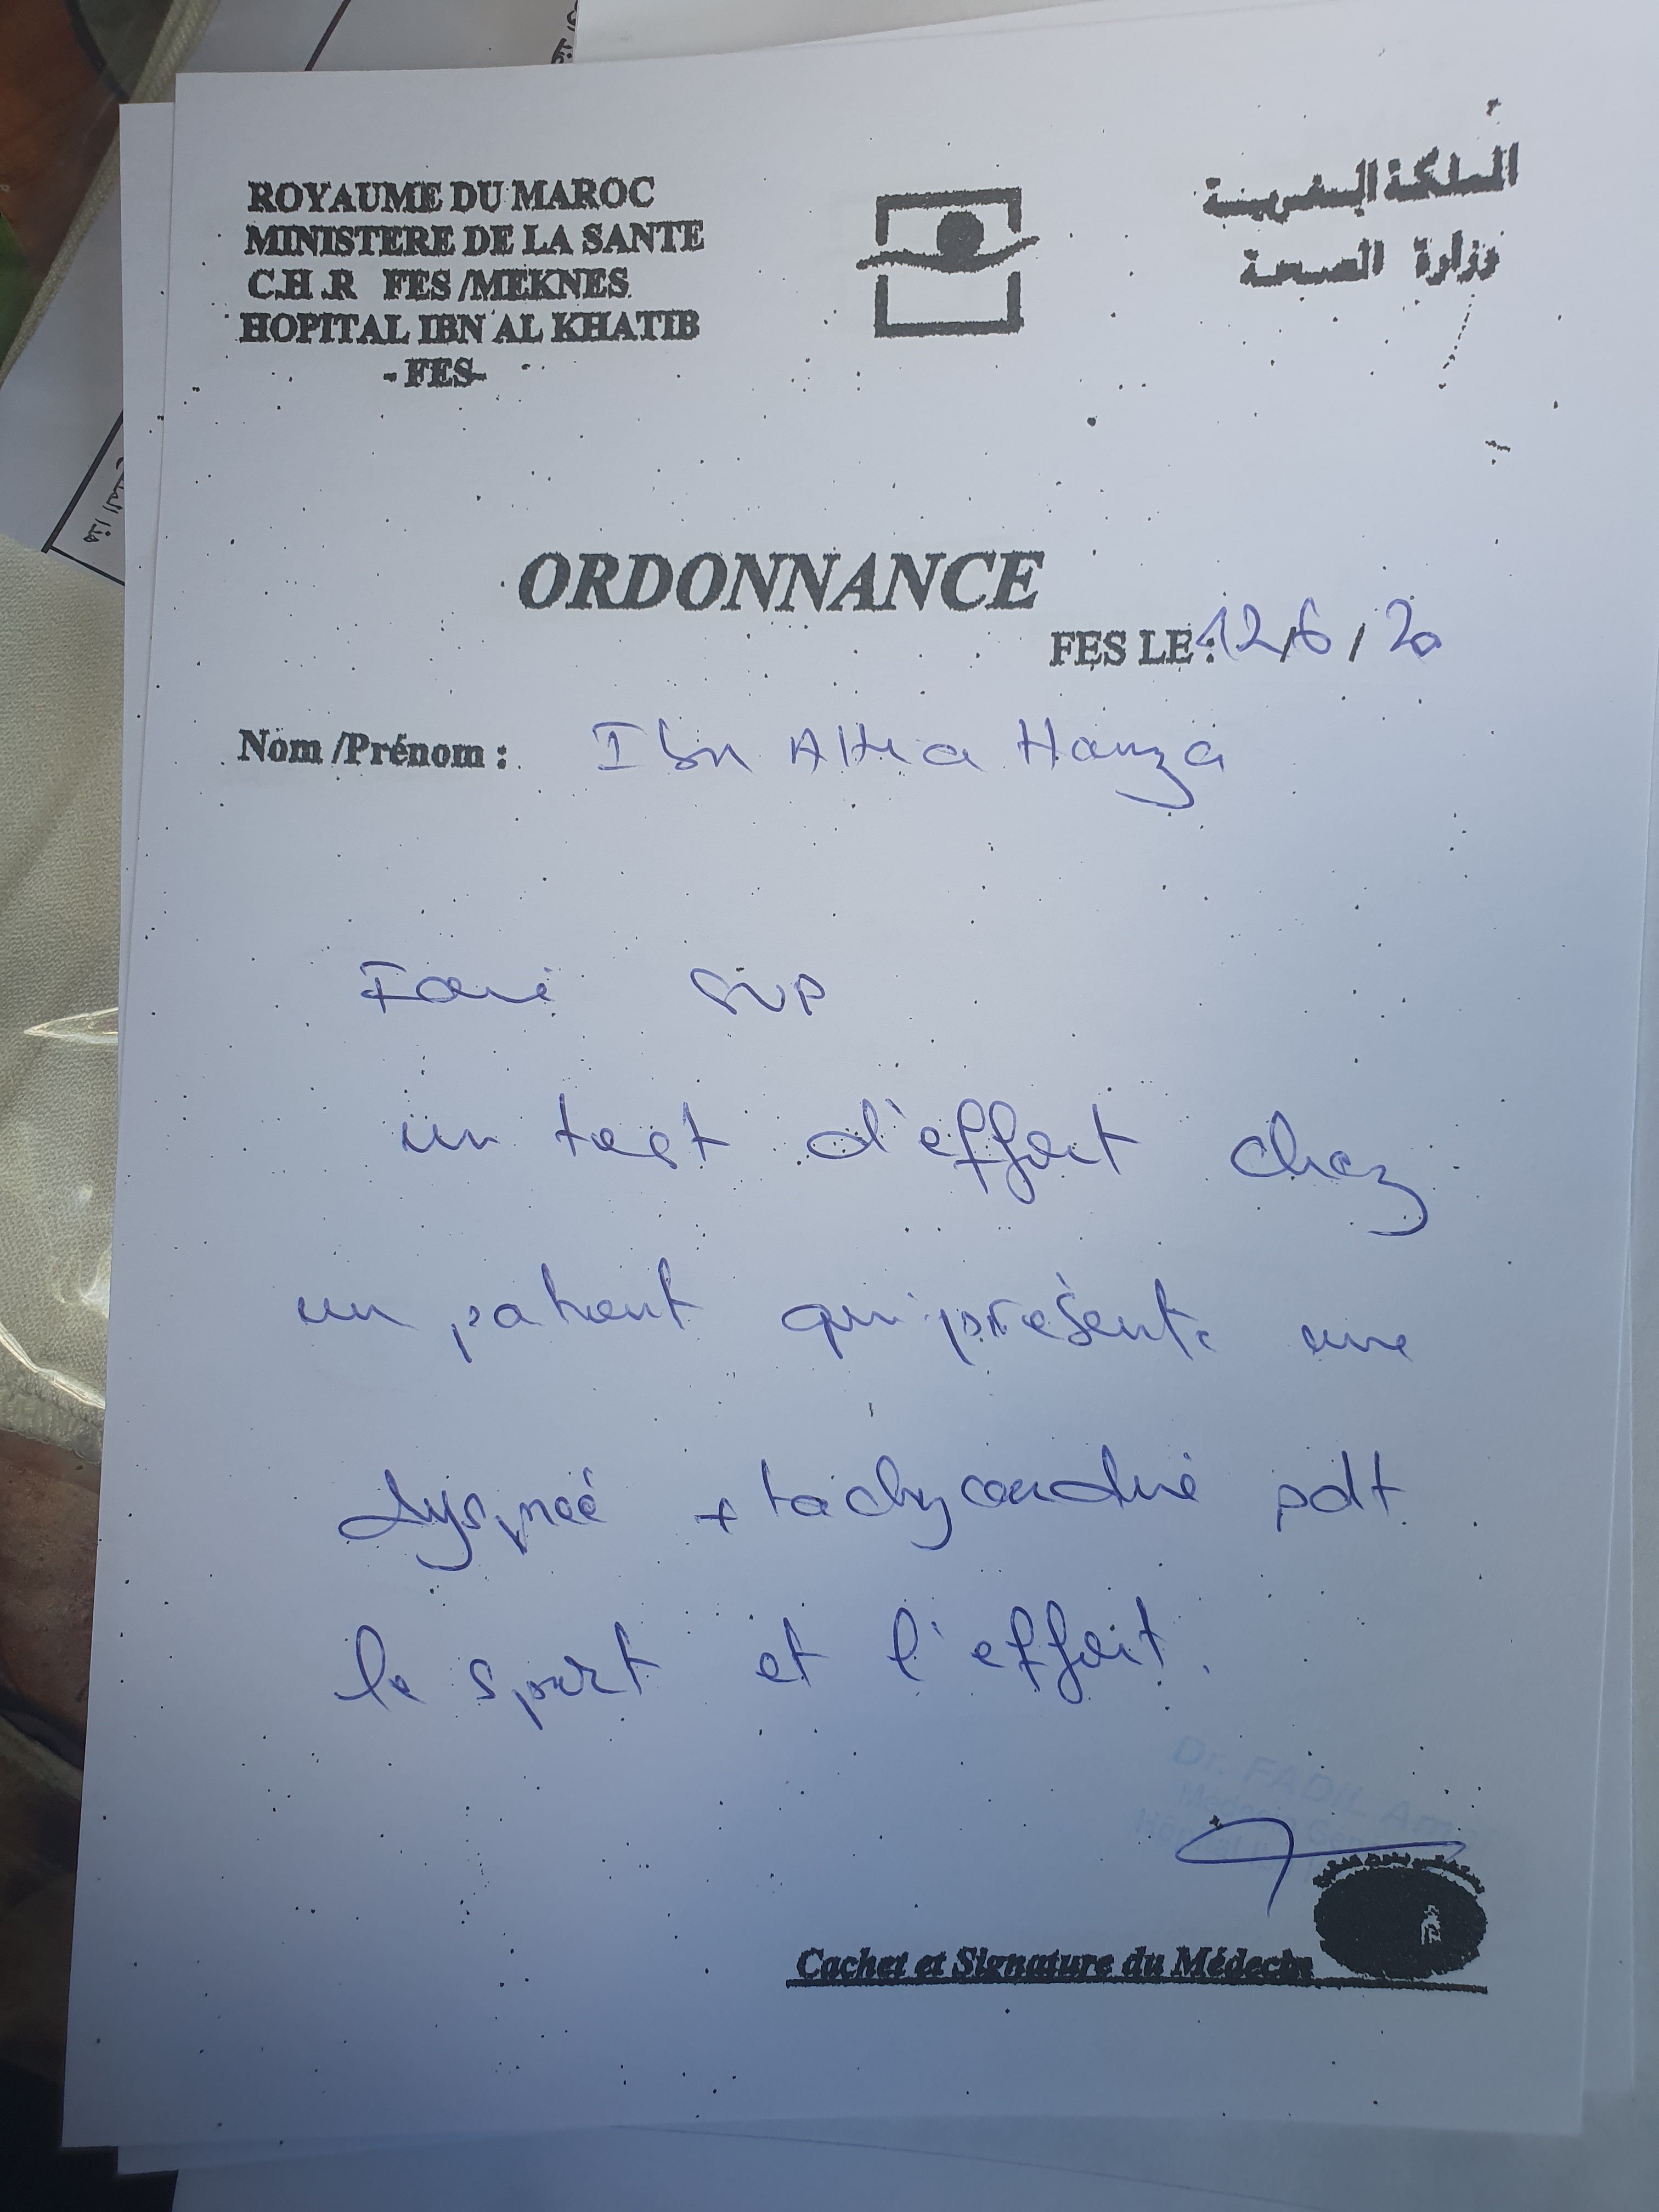 ROYAUME DU MAROC
MINISTERE DE LA SANTE
C.H.R FES/MEKNES
HOPITAL IBN AL KHATIB
-FES-
المملكة المغربية
وزارة الصحة
ORDONNANCE
FES LE: 12/6/20
Nom/Prénom: Ibn Attia Hamza
Faire SVP
un test d'effort chez
un patient qui présente une
dyspnée + tachycardie pdt
le sport et l'effort.
Dr. FADIL Amal
Cachet et Signature du Médecin